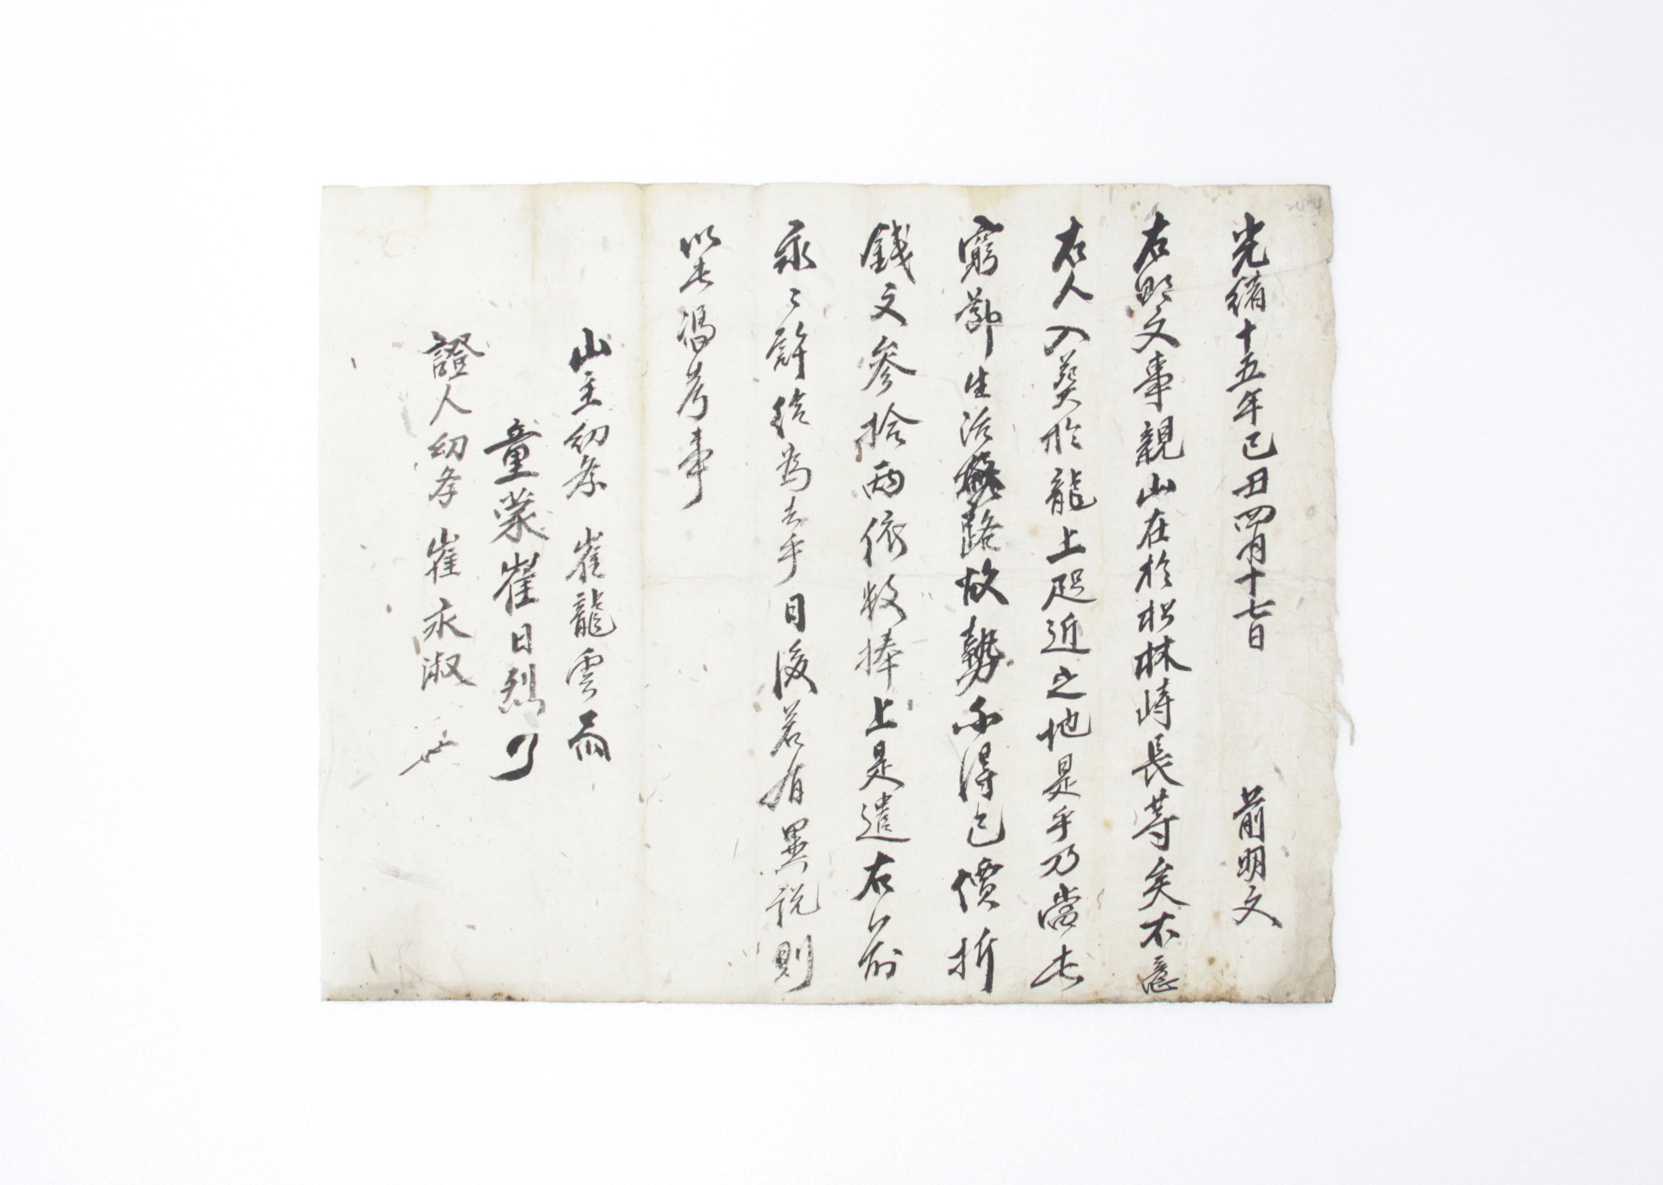 光緖十五年己丑四月十七日 前明文
右明文事親山在於松林峙長等矣不意
右人入葬於龍上咫近之地是乎乃當此
窮節生活無路故勢不得已價折
錢文參拾兩依數捧上是遣右前
永〻許給爲去乎日後若有異說則
以此憑考事
山主幼學 崔龍雲
童蒙崔日烈
證人幼學 崔永淑